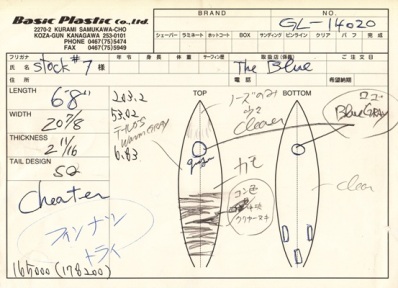 Basic Plastic Co., Ltd.
2270-2 KURAMI SAMUKAWA-CHO
KOZA-GUN KANAGAWA 253-0101
PHONE 0467(75)5474
FAX 0467(75)5949
BRAND
NO.
GL-14020
シェーパー ラミネート ホットコート BOX サンディング ピンライン クリア バフ 完成
フリガナ 年令 身長 体重 サーフィン歴 取扱店 ご注文日
氏名 stock #7 様 The Blue
住所 電話 希望納期
LENGTH
6'8"
203.2
WIDTH
20 7/8
53.02
THICKNESS
2 11/16
6.83
TAIL DESIGN
SQ
TOP
BOTTOM
ノーズのみ
Clear
ロゴ
Blue GRAY
カモ
コンセ
clear
Cheater
フィンナシ
トライ
165000 (178200)